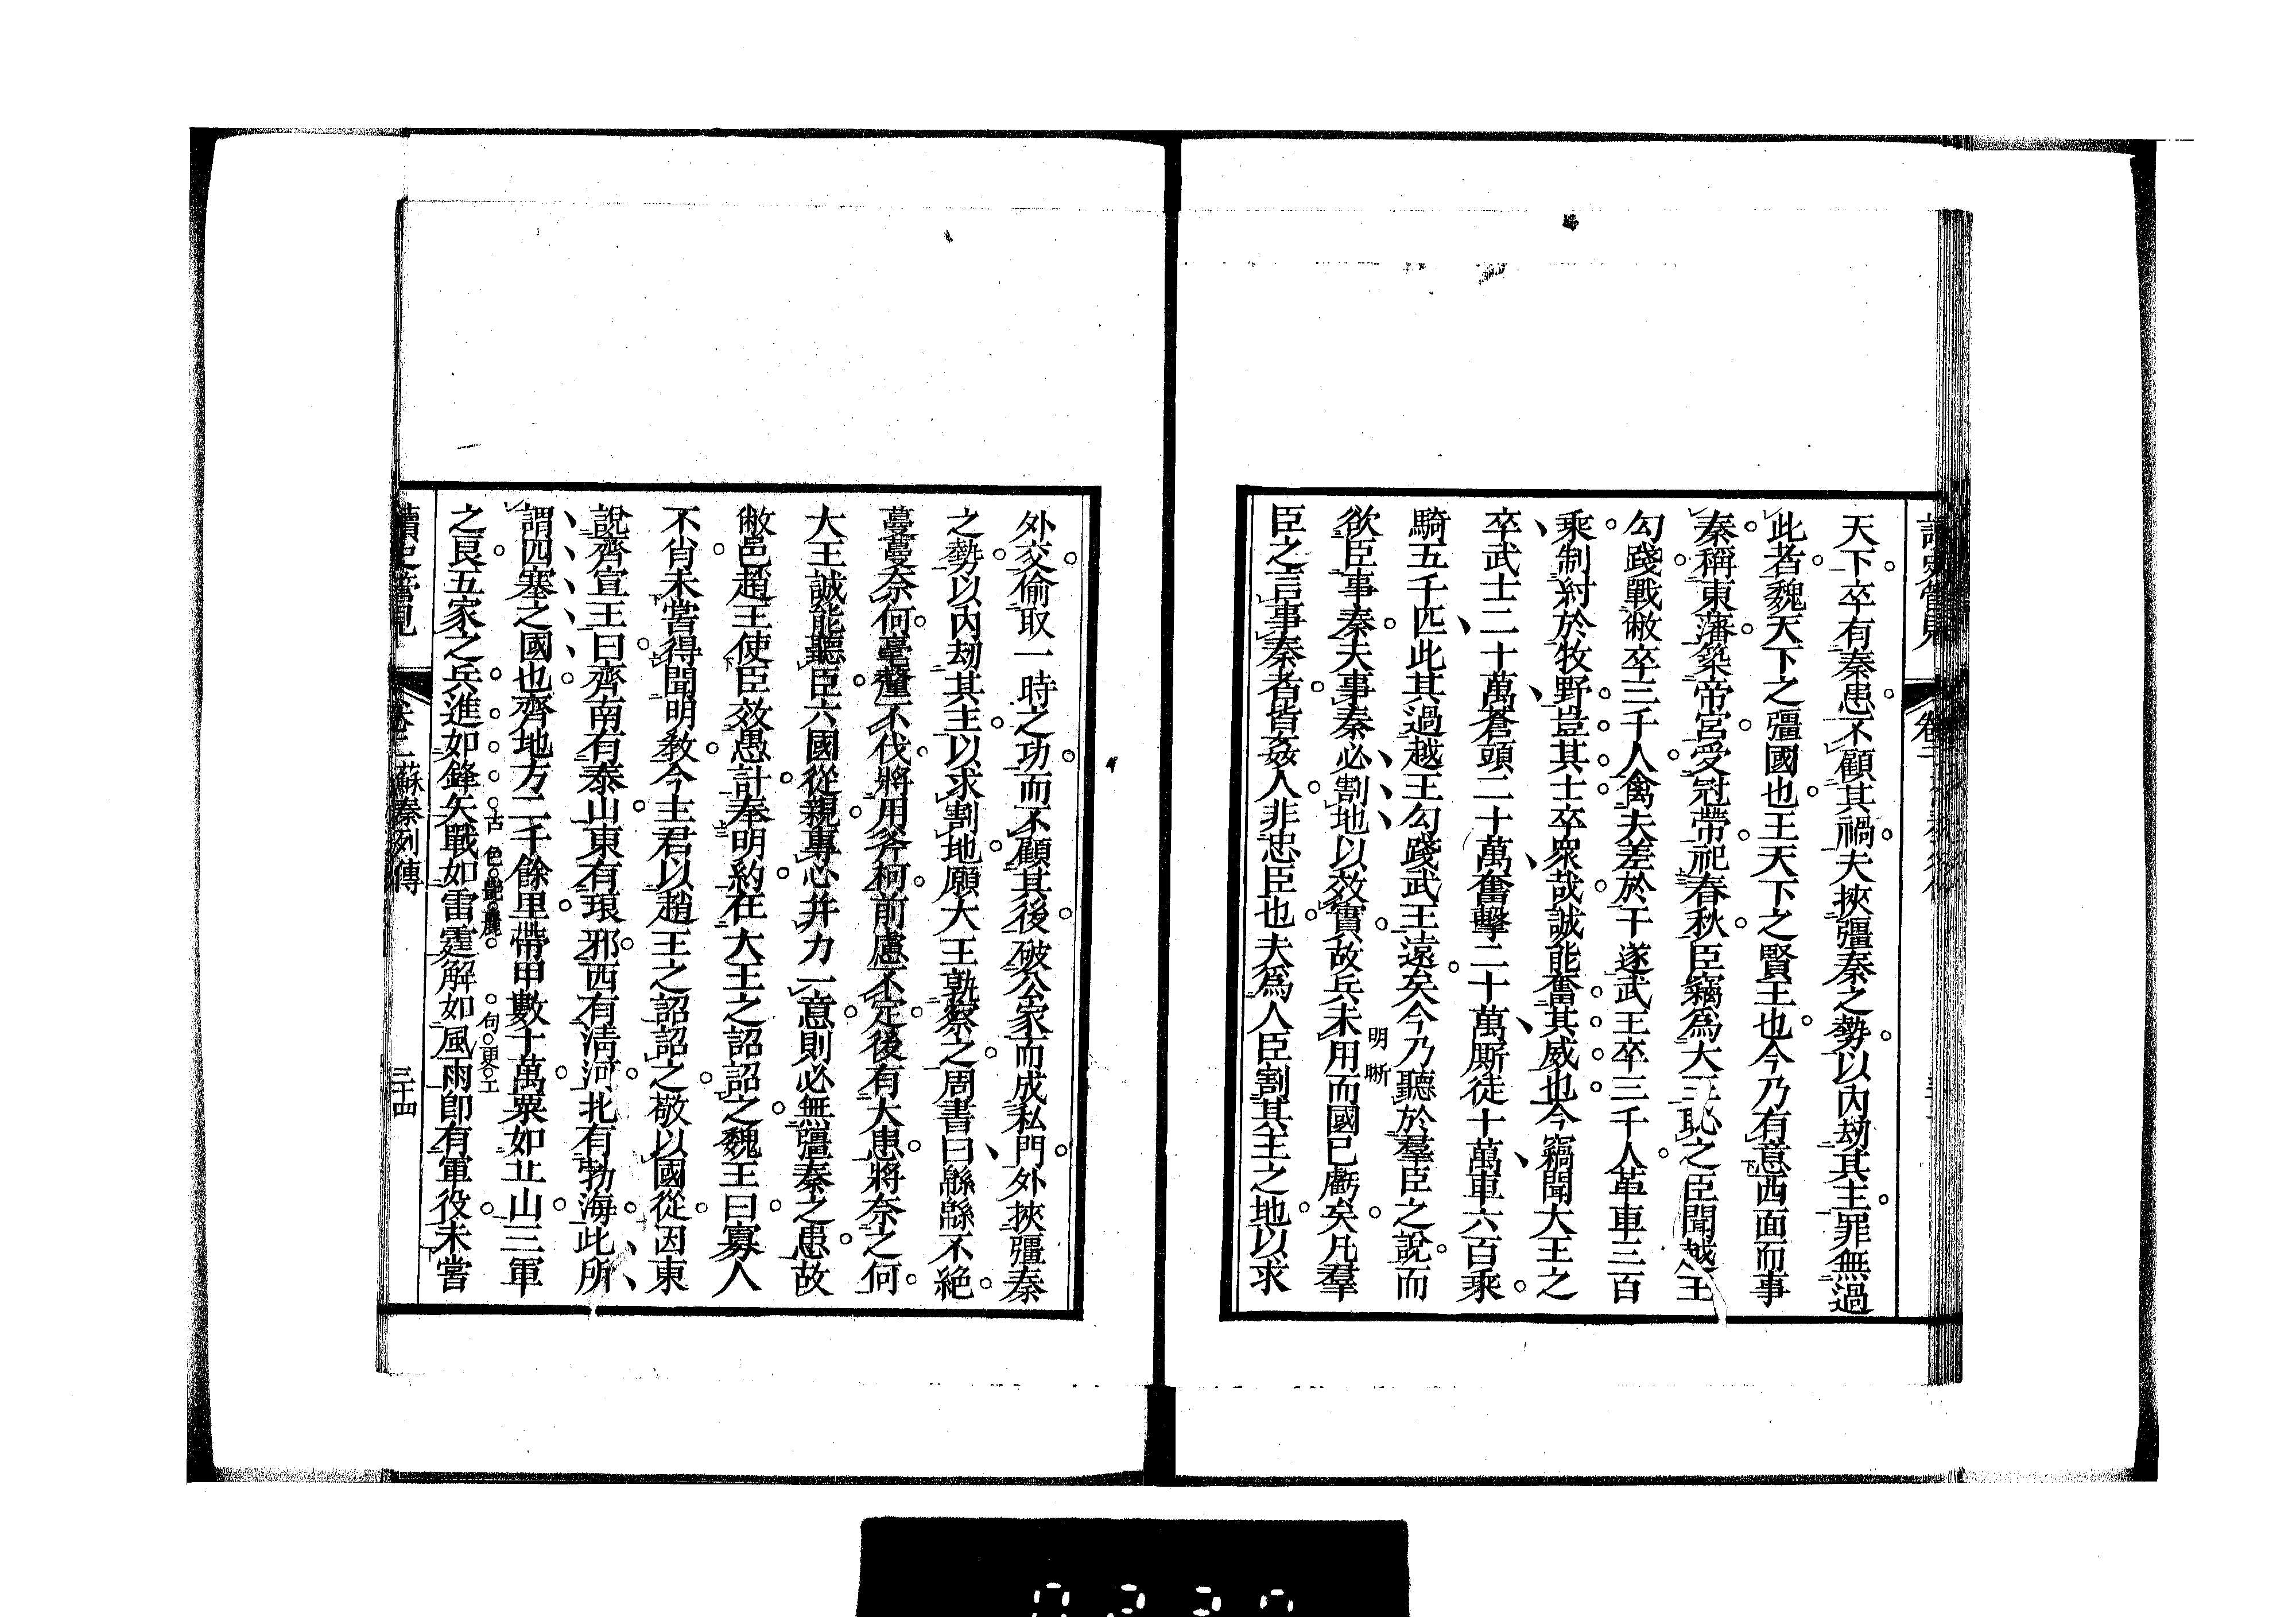 天下卒有秦患不顧其禍夫挾彊秦之勢以內劫其主罪無過
此者魏天下之彊國也王天下之賢王也今乃有意西面而事
秦稱東藩築帝宮受冠帶祀春秋臣竊爲大王恥之臣聞越王
勾踐戰敝卒三千人禽夫差於干遂武王卒三千人革車三百
乘制紂於牧野豈其士卒衆哉誠能奮其威也今竊聞大王之
卒武士二十萬蒼頭二十萬奮擊二十萬厮徒十萬車六百乘
騎五千匹此其過越王勾踐武王遠矣今乃聽於羣臣之說而
欲臣事秦夫事秦必割地以效實故兵未用而國已虧矣凡羣
明晣
臣之言事秦者皆姦人非忠臣也夫爲人臣割其主之地以求
外交偷取一時之功而不顧其後破公家而成私門外挾彊秦
之勢以內劫其主以求割地願大王孰察之周書曰緜緜不絶
蔓蔓奈何毫釐不伐將用斧柯前慮不定後有大患將奈之何
大王誠能聽臣六國從親專心并力一意則必無彊秦之患故
敝邑趙王使臣效愚計奉明約在大王之詔詔之魏王曰寡人
不肖未嘗得聞明教今主君以趙王之詔詔之敬以國從因東
說齊宣王曰齊南有泰山東有琅邪西有淸河北有勃海此所
謂四塞之國也齊地方二千餘里帶甲數十萬粟如丘山三軍
古色艷麗
句更工
之良五家之兵進如鋒矢戰如雷霆解如風雨卽有軍役未嘗
讀史管見
卷二 蘇秦列傳
三十四